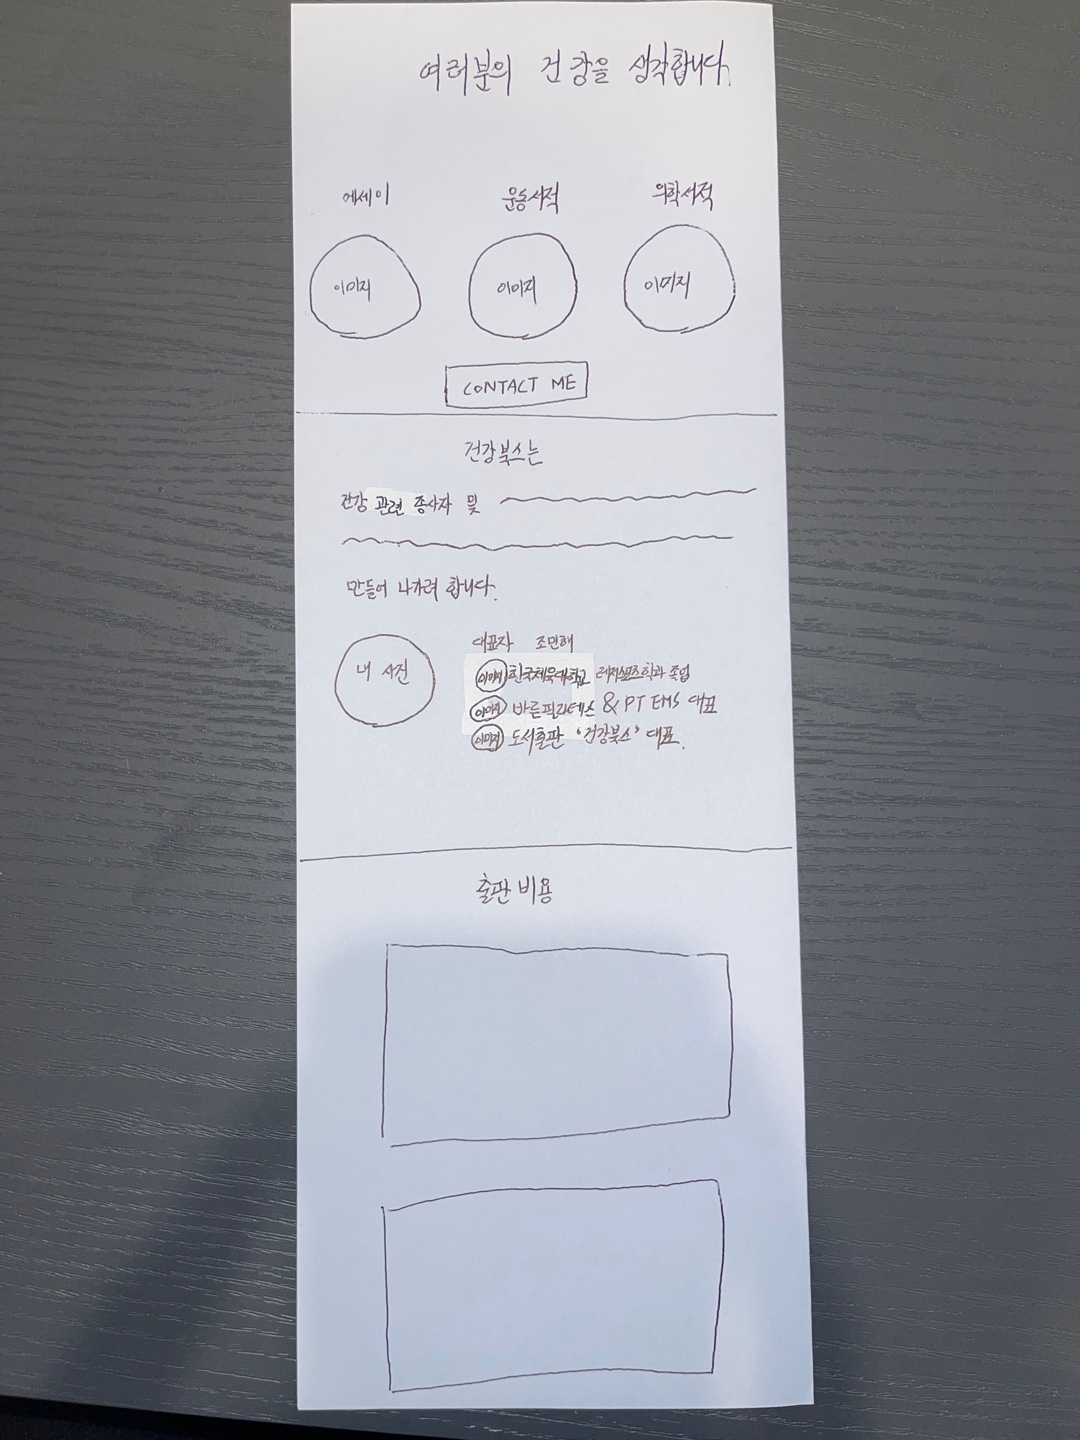 여러분의 건강을 생각합니다.
에세이 운동서적 의학서적
이미지 이미지 이미지
CONTACT ME
건강북스는
건강 관련 종사자 및
만들어 나가려 합니다.
내 사진
대표자 조민해
이미지 한국체육대학교 레저스포츠학과 졸업
이미지 바른필라테스 & PT EMS 대표
이미지 도서출판 '건강북스' 대표.
출판 비용